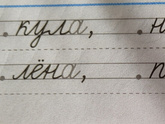 . кула, . н
. лёна, . п